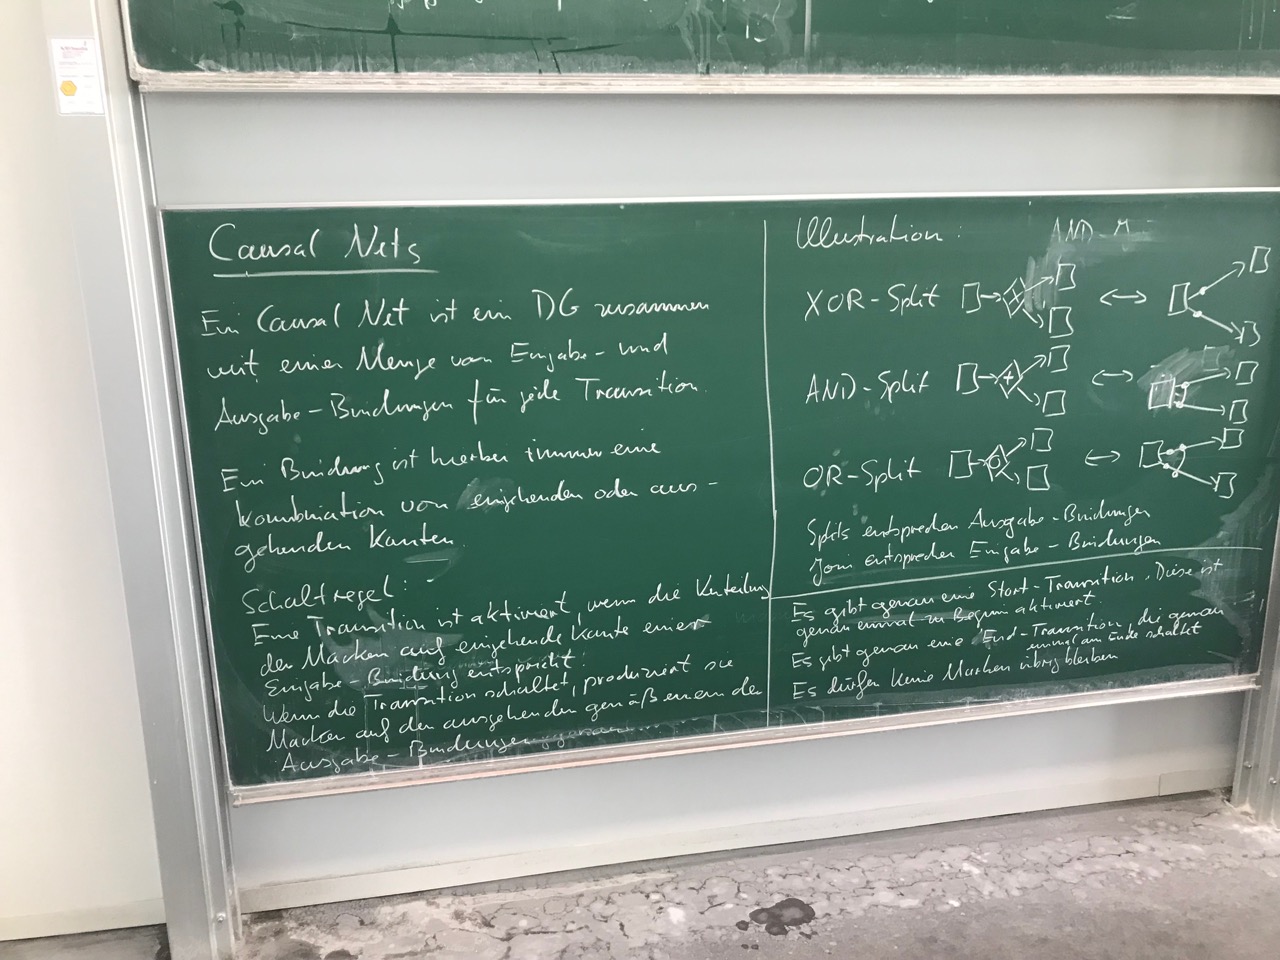 Causal Nets
Ein Causal Net ist ein DG zusammen
mit einer Menge von Eingabe- und
Ausgabe-Bindungen für jede Transition.
Ein Bindung ist hierbei immer eine
Kombination von eingehenden oder aus-
gehenden Kanten.
Schaltregel:
Eine Transition ist aktiviert, wenn die Verteilung
der Marken auf eingehende Kante einer
Eingabe-Bindung entspricht.
Wenn die Transition schaltet, produziert sie
Marken auf den ausgehenden gemäß einem der
Ausgabe-Bindungen
Illustration:
AND-M
XOR-Split
AND-Split
OR-Split
Splits entsprechen Ausgabe-Bindungen
Join entsprechen Eingabe-Bindungen
Es gibt genau eine Start-Transition. Diese ist
genau einmal zu Beginn aktiviert
Es gibt genau eine End-Transition, die genau
einmal am Ende schaltet
Es dürfen keine Marken übrig bleiben